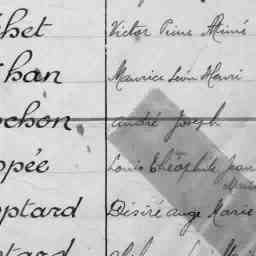 chet Victor Pierre Aimé
han Maurice Léon Henri
ochon André Joseph
ppée Louis Théophile Jean
Marie
ptard Désiré Ange Marie